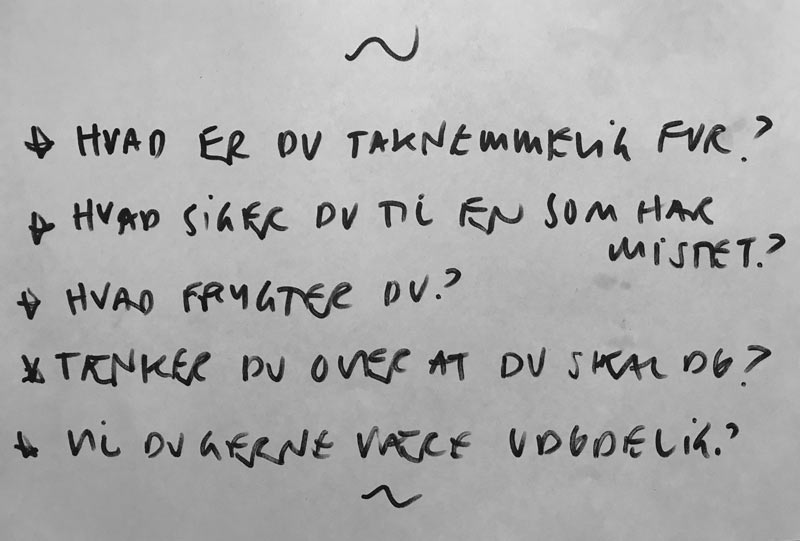 HVAD ER DU TAKNEMMELIG FOR?
HVAD SIGER DU TIL EN SOM HAR
MISTET?
HVAD FRYGTER DU?
TÆNKER DU OVER AT DU SKAL DØ?
VIL DU GERNE VÆRE UDØDELIG?